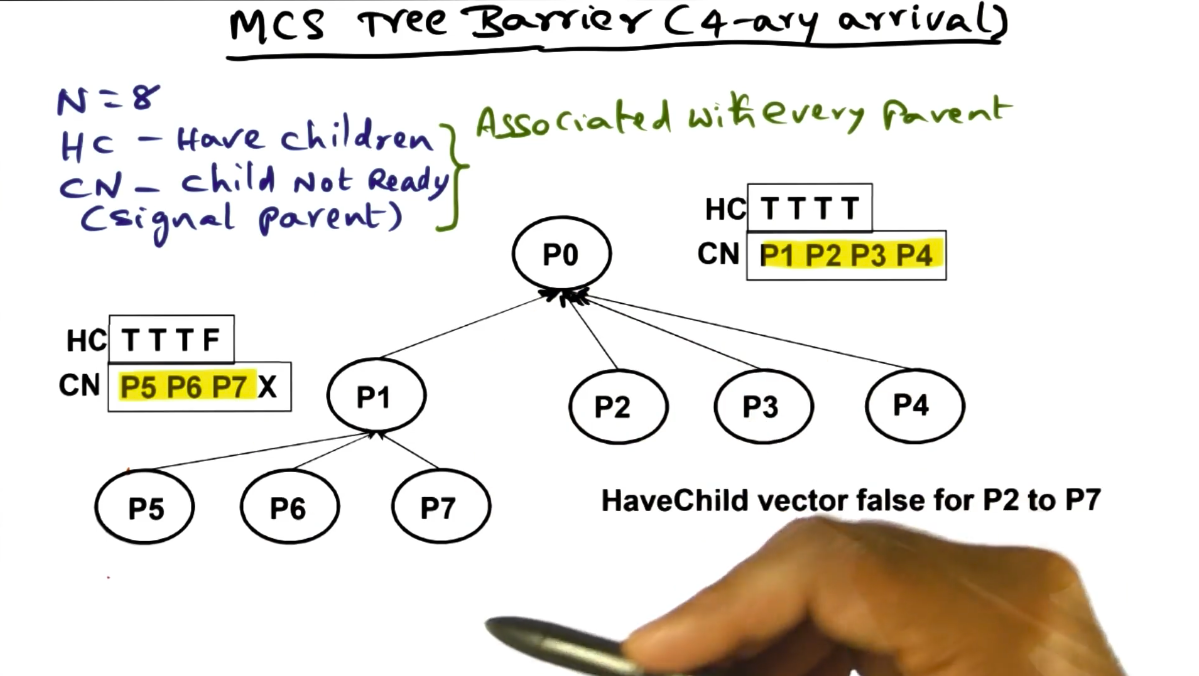 MCS Tree Barrier (4-ary arrival)
N=8
HC - Have children
CN - Child Not Ready
(signal parent)
Associated with every parent
HC T T T T
CN P1 P2 P3 P4
P0
HC T T T F
CN P5 P6 P7 X
P1
P2
P3
P4
P5
P6
P7
HaveChild vector false for P2 to P7